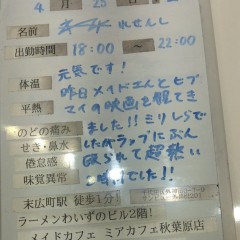 4 月 25 日
名前 れせんし
出勤時間 18:00 ~ 22:00
体温 元気です!
平熱 昨日メイドさんとヒプマイの映画を観てき
のどの痛み ました!!ミリしらで
せき・鼻水 いたがラップにぶん
倦怠感 殴られて超熱い
味覚異常 でした!!
末広町駅 徒歩1分!
ラーメンわいずのビル2階!
メイドカフェ ミアカフェ秋葉原店